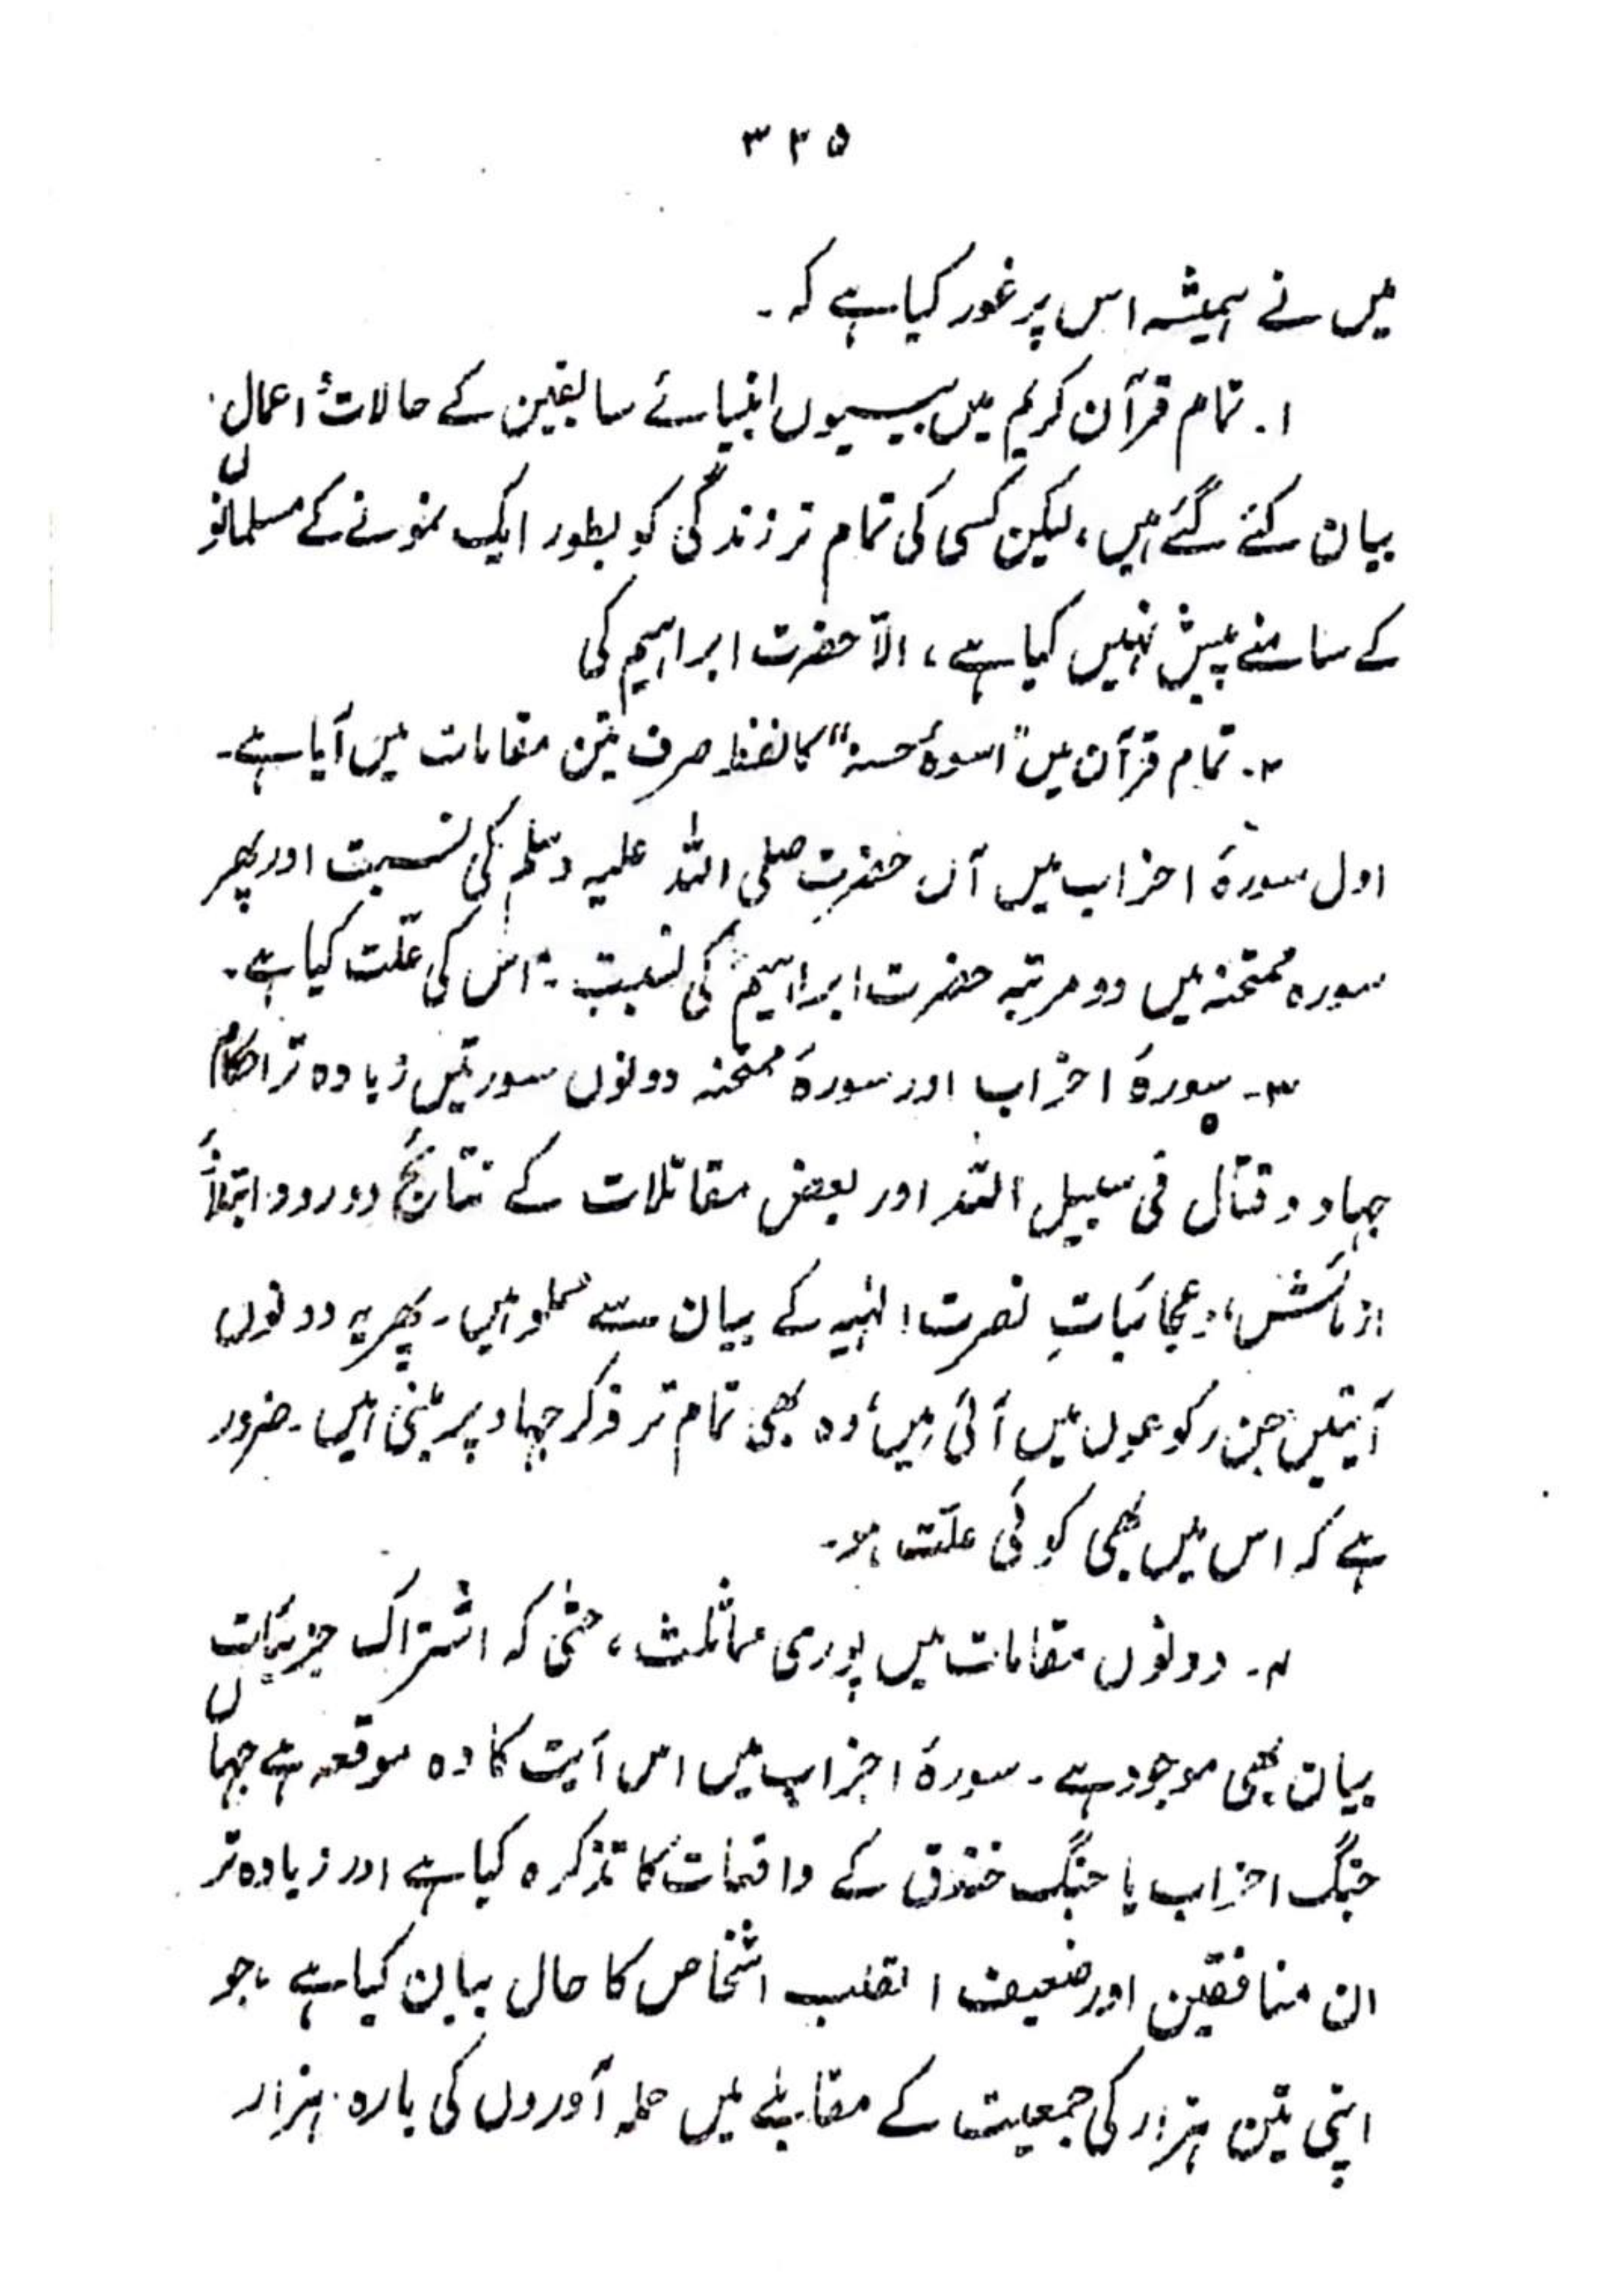 ۳۲۵
میں نے ہمیشہ اس پر غور کیا ہے کہ۔
۱۔ تمام قرآن کریم میں بیسیوں انبیائے سابقین کے حالات و اعمال
بیان کئے گئے ہیں، لیکن کسی کی تمام تر زندگی کو بطور ایک نمونے کے مسلمانوں
کے سامنے پیش نہیں کیا ہے، الّا حضرت ابراہیم کی
۲۔ تمام قرآن میں "اسوۂ حسنہ" کا لفظ صرف تین مقامات میں آیا ہے۔
اول سورۂ احزاب میں آں حضرت صلی اللہ علیہ وسلم کی نسبت اور پھر
سورہ ممتحنہ میں دو مرتبہ حضرت ابراہیمؑ کی نسبت۔ اس کی علّت کیا ہے۔
۳۔ سورۂ احزاب اور سورۂ ممتحنہ دونوں سورتیں زیادہ تر احکام
جہاد و قتال فی سبیل اللہ اور بعض مقاتلات کے نتائج و ورود ابتلاء
ازمائش، و عجائبات نصرت الٰہیہ کے بیان سے مملو ہیں۔ پھر یہ دونوں
آیتیں جن رکوعوں میں آئی ہیں، وہ بھی تمام تر ذکر جہاد پر مبنی ہیں۔ ضرور
ہے کہ اس میں بھی کوئی علّت ہو۔
۴۔ دونوں مقامات میں پوری مماثلت، حتیٰ کہ اشتراک جزئیات
بیان بھی موجود ہے۔ سورۂ احزاب میں اس آیت کا وہ موقعہ ہے جہاں
جنگ احزاب یا جنگ خندق کے واقعات کا تذکرہ کیا ہے اور زیادہ تر
ان منافقین اور ضعیف القلب اشخاص کا حال بیان کیا ہے، جو
اپنی تین ہزار کی جمعیت کے مقابلے میں حملہ آوروں کی بارہ ہزار